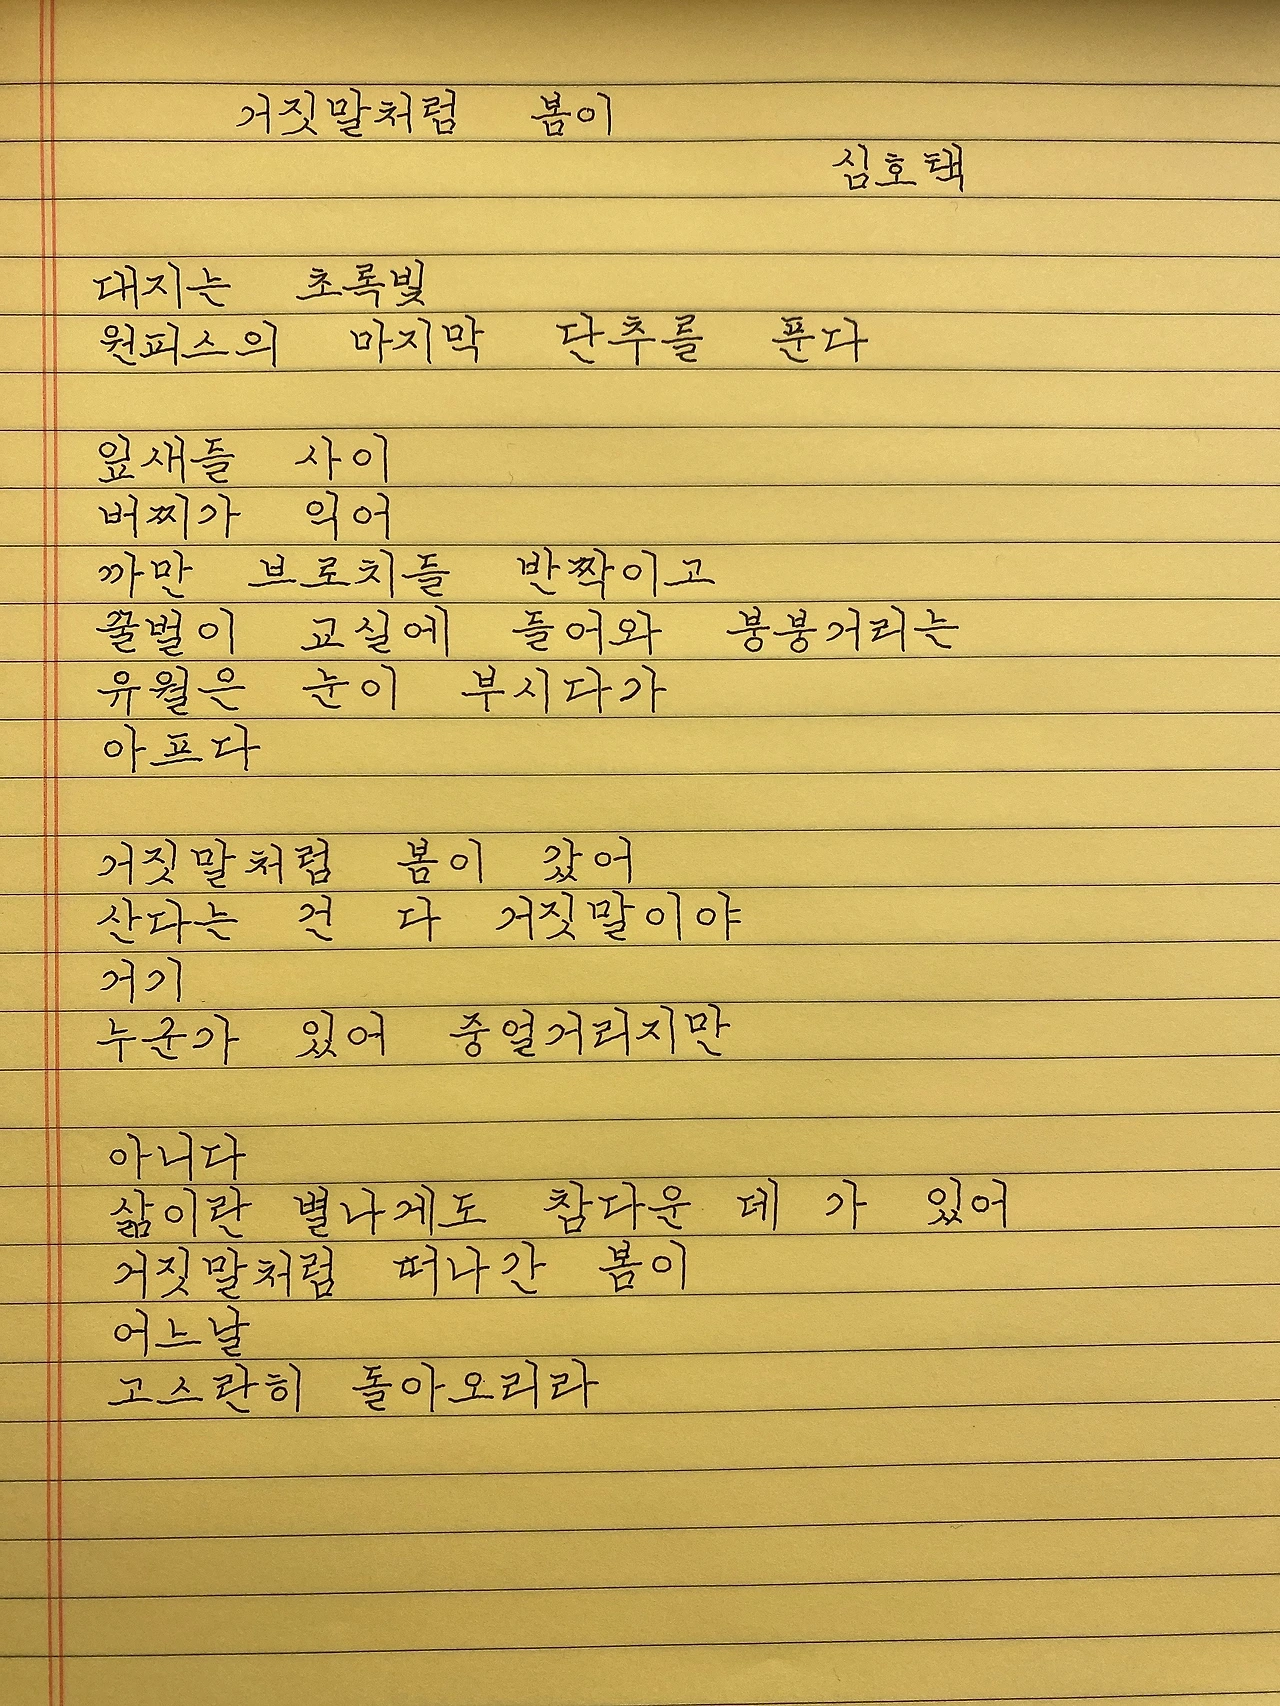 거짓말처럼 봄이
심호택
대지는 초록빛
원피스의 마지막 단추를 푼다
잎새들 사이
버찌가 익어
까만 브로치들 반짝이고
꿀벌이 교실에 들어와 붕붕거리는
유월은 눈이 부시다가
아프다
거짓말처럼 봄이 갔어
산다는 건 다 거짓말이야
거기
누군가 있어 중얼거리지만
아니다
삶이란 별나게도 참다운 데 가 있어
거짓말처럼 떠나간 봄이
어느날
고스란히 돌아오리라